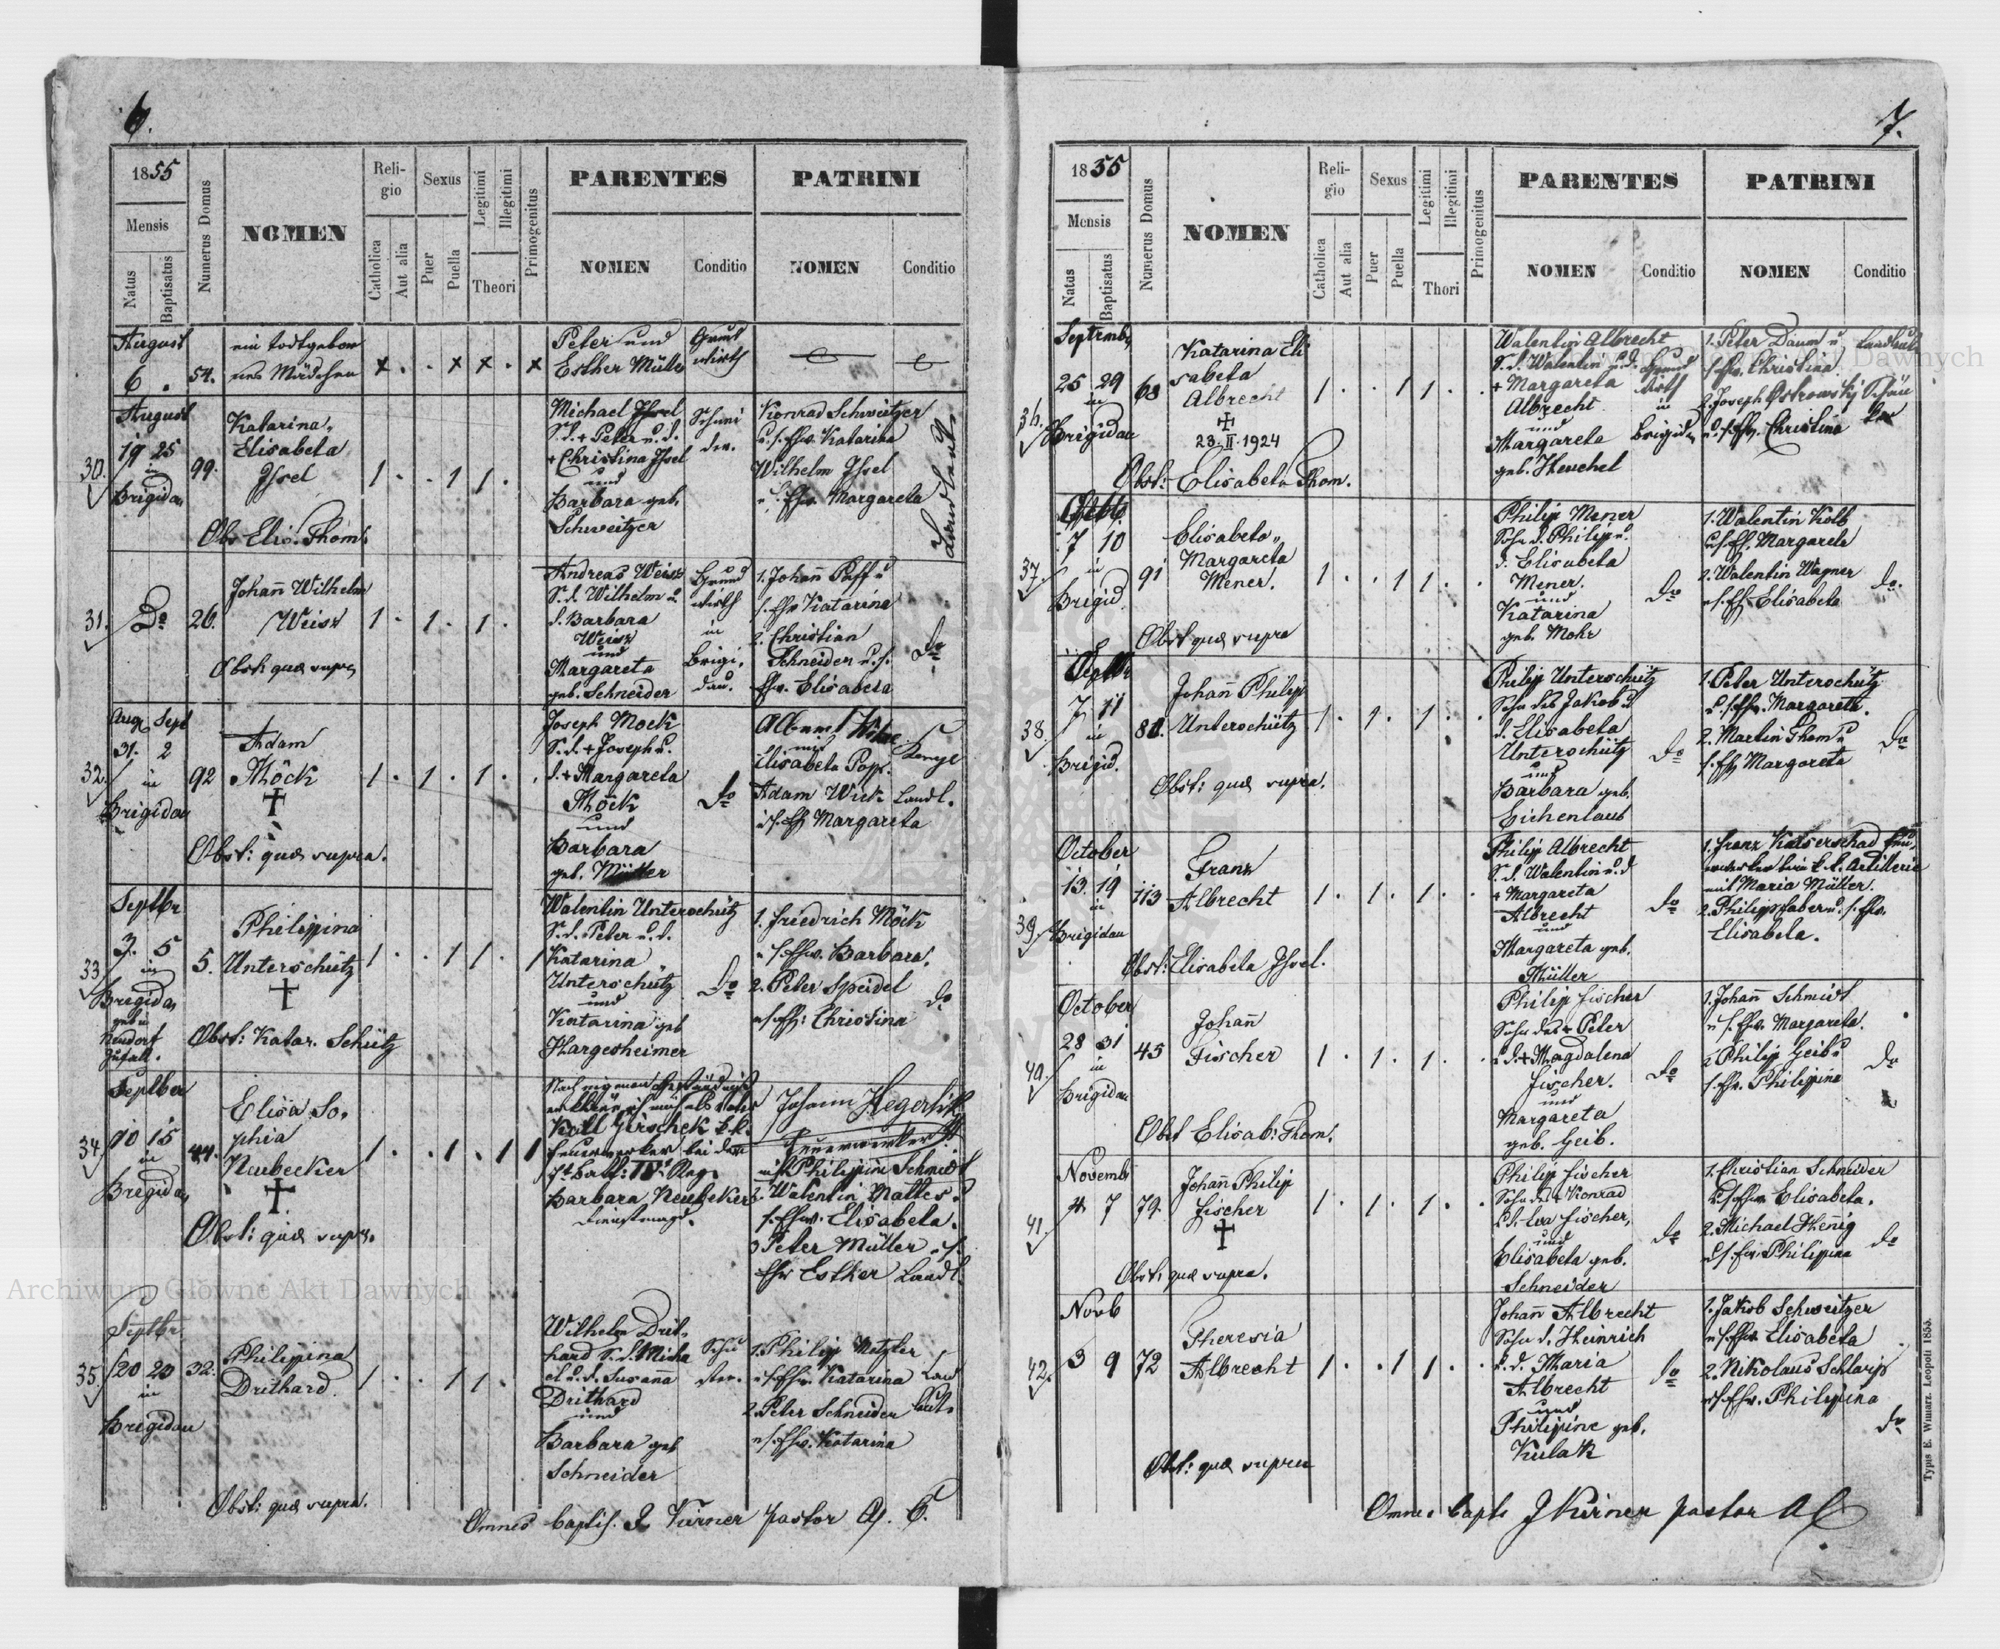 6.
1855
Mensis
Natus
Baptisatus
Numerus Domus
NOMEN
Reli-
gio
Catholica
Aut alia
Sexus
Puer
Puella
Legitimi
Illegitimi
Theori
Primogenitus
PARENTES
NOMEN
Conditio
PATRINI
NOMEN
Conditio
August
6.
54.
ein todtgebore
nes Mädchen
Peter und
Esther Müller
Grund
wirth
30.
August
19 25
in
Brigidau
99.
Katarina
Elisabeta
Issel
Obs Elis. Thom.
Michael Issel
S. d. + Peter u. d.
+ Christina Issel
und
Barbara geb.
Schweitzer
Schnei
der.
Konrad Schweitzer
u. s. Ehw. Katarina
Wilhelm Issel
u. s. Ehw. Margareta
Landleute
31.
Do
26.
Johann Wilhelm
Weisz
Obst: quæ supra
Andreas Weisz
S. d. Wilhelm u
d. Barbara
Weisz
und
Margareta
geb. Schneider
Grund
wirth
in
Brigi.
dau.
1. Johann Paff u
s. Ehw Katarina
2. Christian
Schneider u. s.
Ehw. Elisabeta
Do
32.
Aug Sept
31. 2
in
Brigidau
92
Adam
Möck
†
Obst: quæ supra.
Joseph Mock
S. d. + Joseph u.
d. + Margareta
Möck
und
Barbara
geb. Müller
Do
und
Elisabeta Pop.
Adam Wick Landl.
u s. Eh Margareta
33
Septbr
3. 5
in
Brigidau
geb in
Neudorf
Zufäll.
5.
Philippina
Unterschütz
†
Obst: Katar. Schütz
Walentin Unterschütz
S. d. Peter u. d.
Katarina
Unterschütz
und
Katarina geb
Hargesheimer
Do
1. Friedrich Möck
u s. Ehw. Barbara.
2. Peter Speidel
u s. Eh: Christina
do
34
Septber
10 15
in
Brigidau
44.
Elisa So.
phia
Neubecker
†
Obst: quæ supra.
Barbara Neubecker
Dienstmagd.
Johann Hegerlik
Feuerwerker
mit Philippine Schmidt
2. Walentin Mattes u
s. Ehw. Elisabeta.
3 Peter Müller u s.
Ehw Esther Landl.
35
Septbr.
20 20
in
Brigidau
32.
Philippina
Drithard
Obst: quæ supra.
Wilhelm Drit.
hard S. d. Micha
el u. d. Susanna
Drithard
und
Barbara geb
Schneider
Schu
ster.
1. Philip Metzler
u s. Ehw. Katarina
2. Peter Schneider
u s. Ehw. Katarina
Land
leute
Omnes baptis. J Kürner pastor A. C.
7.
1855
Mensis
Natus
Baptisatus
Numerus Domus
NOMEN
Reli-
gio
Catholica
Aut alia
Sexus
Puer
Puella
Legitimi
Illegitimi
Thori
Primogenitus
PARENTES
NOMEN
Conditio
PATRINI
NOMEN
Conditio
36.
Septemb.
25 29
in
Brigidau
68
Katarina Eli
sabeta
Albrecht
†
23.II.1924
Obst: Elisabeta Thom.
Walentin Albrecht
S. d. Walentin u. d.
+ Margareta
Albrecht
und
Margareta
geb. Henchel
Grund
wirth
in
Brigidau
1. Peter Daum u
s. Ehw. Christina.
2. Joseph Ostrowsky
u. s. Ehw. Christina
Landleute
37.
Octb
7 10
in
Brigid.
91
Elisabeta
Margareta
Mener.
Obst quæ supra
Philip Mener
Sohn d. Philip u.
d. Elisabeta
Mener.
und
Katarina
geb. Mohr
Do
1. Walentin Kolb
u. s. Eh. Margareta
2. Walentin Wagner
u s. Eh. Elisabeta
do.
38.
7 11
in
Brigid.
Johann Philip
Unterschütz
Obst: quæ supra.
Philip Unterschütz
Sohn des Jakob u
d. Elisabeta
Unterschütz
und
Barbara geb.
Eichenlaub
Do
1. Peter Unterschütz
u. s. Ehw. Margareta.
2. Martin Thom u
s. Ehw Margareta
do
39
October
13. 19
in
Brigidau
113
Franz
Albrecht
Obst: Elisabeta Issel.
Philip Albrecht
S. d. Walentin u. d
+ Margareta
Albrecht
und
Margareta geb.
Müller
Do
k. k. Artillerie
mit Maria Müller.
2. Philipp Faber u. s. Ehw.
Elisabeta.
40.
October
28 31
in
Brigidau
45
Johann
Fischer
Obst Elisab: Thom.
Philip Fischer
Sohn des + Peter
u. d. + Magdalena
Fischer.
und
Margareta
geb. Geib.
Do
1. Johann Schmidt
u s. Ehw. Margareta.
2 Philip Geib u
s. Ehw. Philippina
Do
41.
Novemb
4 7
79.
Johann Philip
Fischer
†
Obst. quæ supra.
Philip Fischer
Sohn des + Konrad
u. d. Eva Fischer,
und
Elisabeta geb.
Schneider
Do
1. Christian Schneider
u. s. Ehw. Elisabeta.
2. Michael Henig
u s. Ehw. Philippina
do
42.
Novb
3 9
72
Theresia
Albrecht
Obst: quæ supra
Johann Albrecht
Sohn d. Heinrich
u. d. Maria
Albrecht
und
Philippine geb.
Kulak
do
1. Jakob Schweitzer
u s. Ehw. Elisabeta
2. Nikolaus Schlarp
u s. Ehw. Philippina
do
Omnes bapts J Kürner pastor A C
Typis E. Winiarz. Leopoli 1853.
Archiwum Główne Akt Dawnych
Archiwum Główne Akt Dawnych